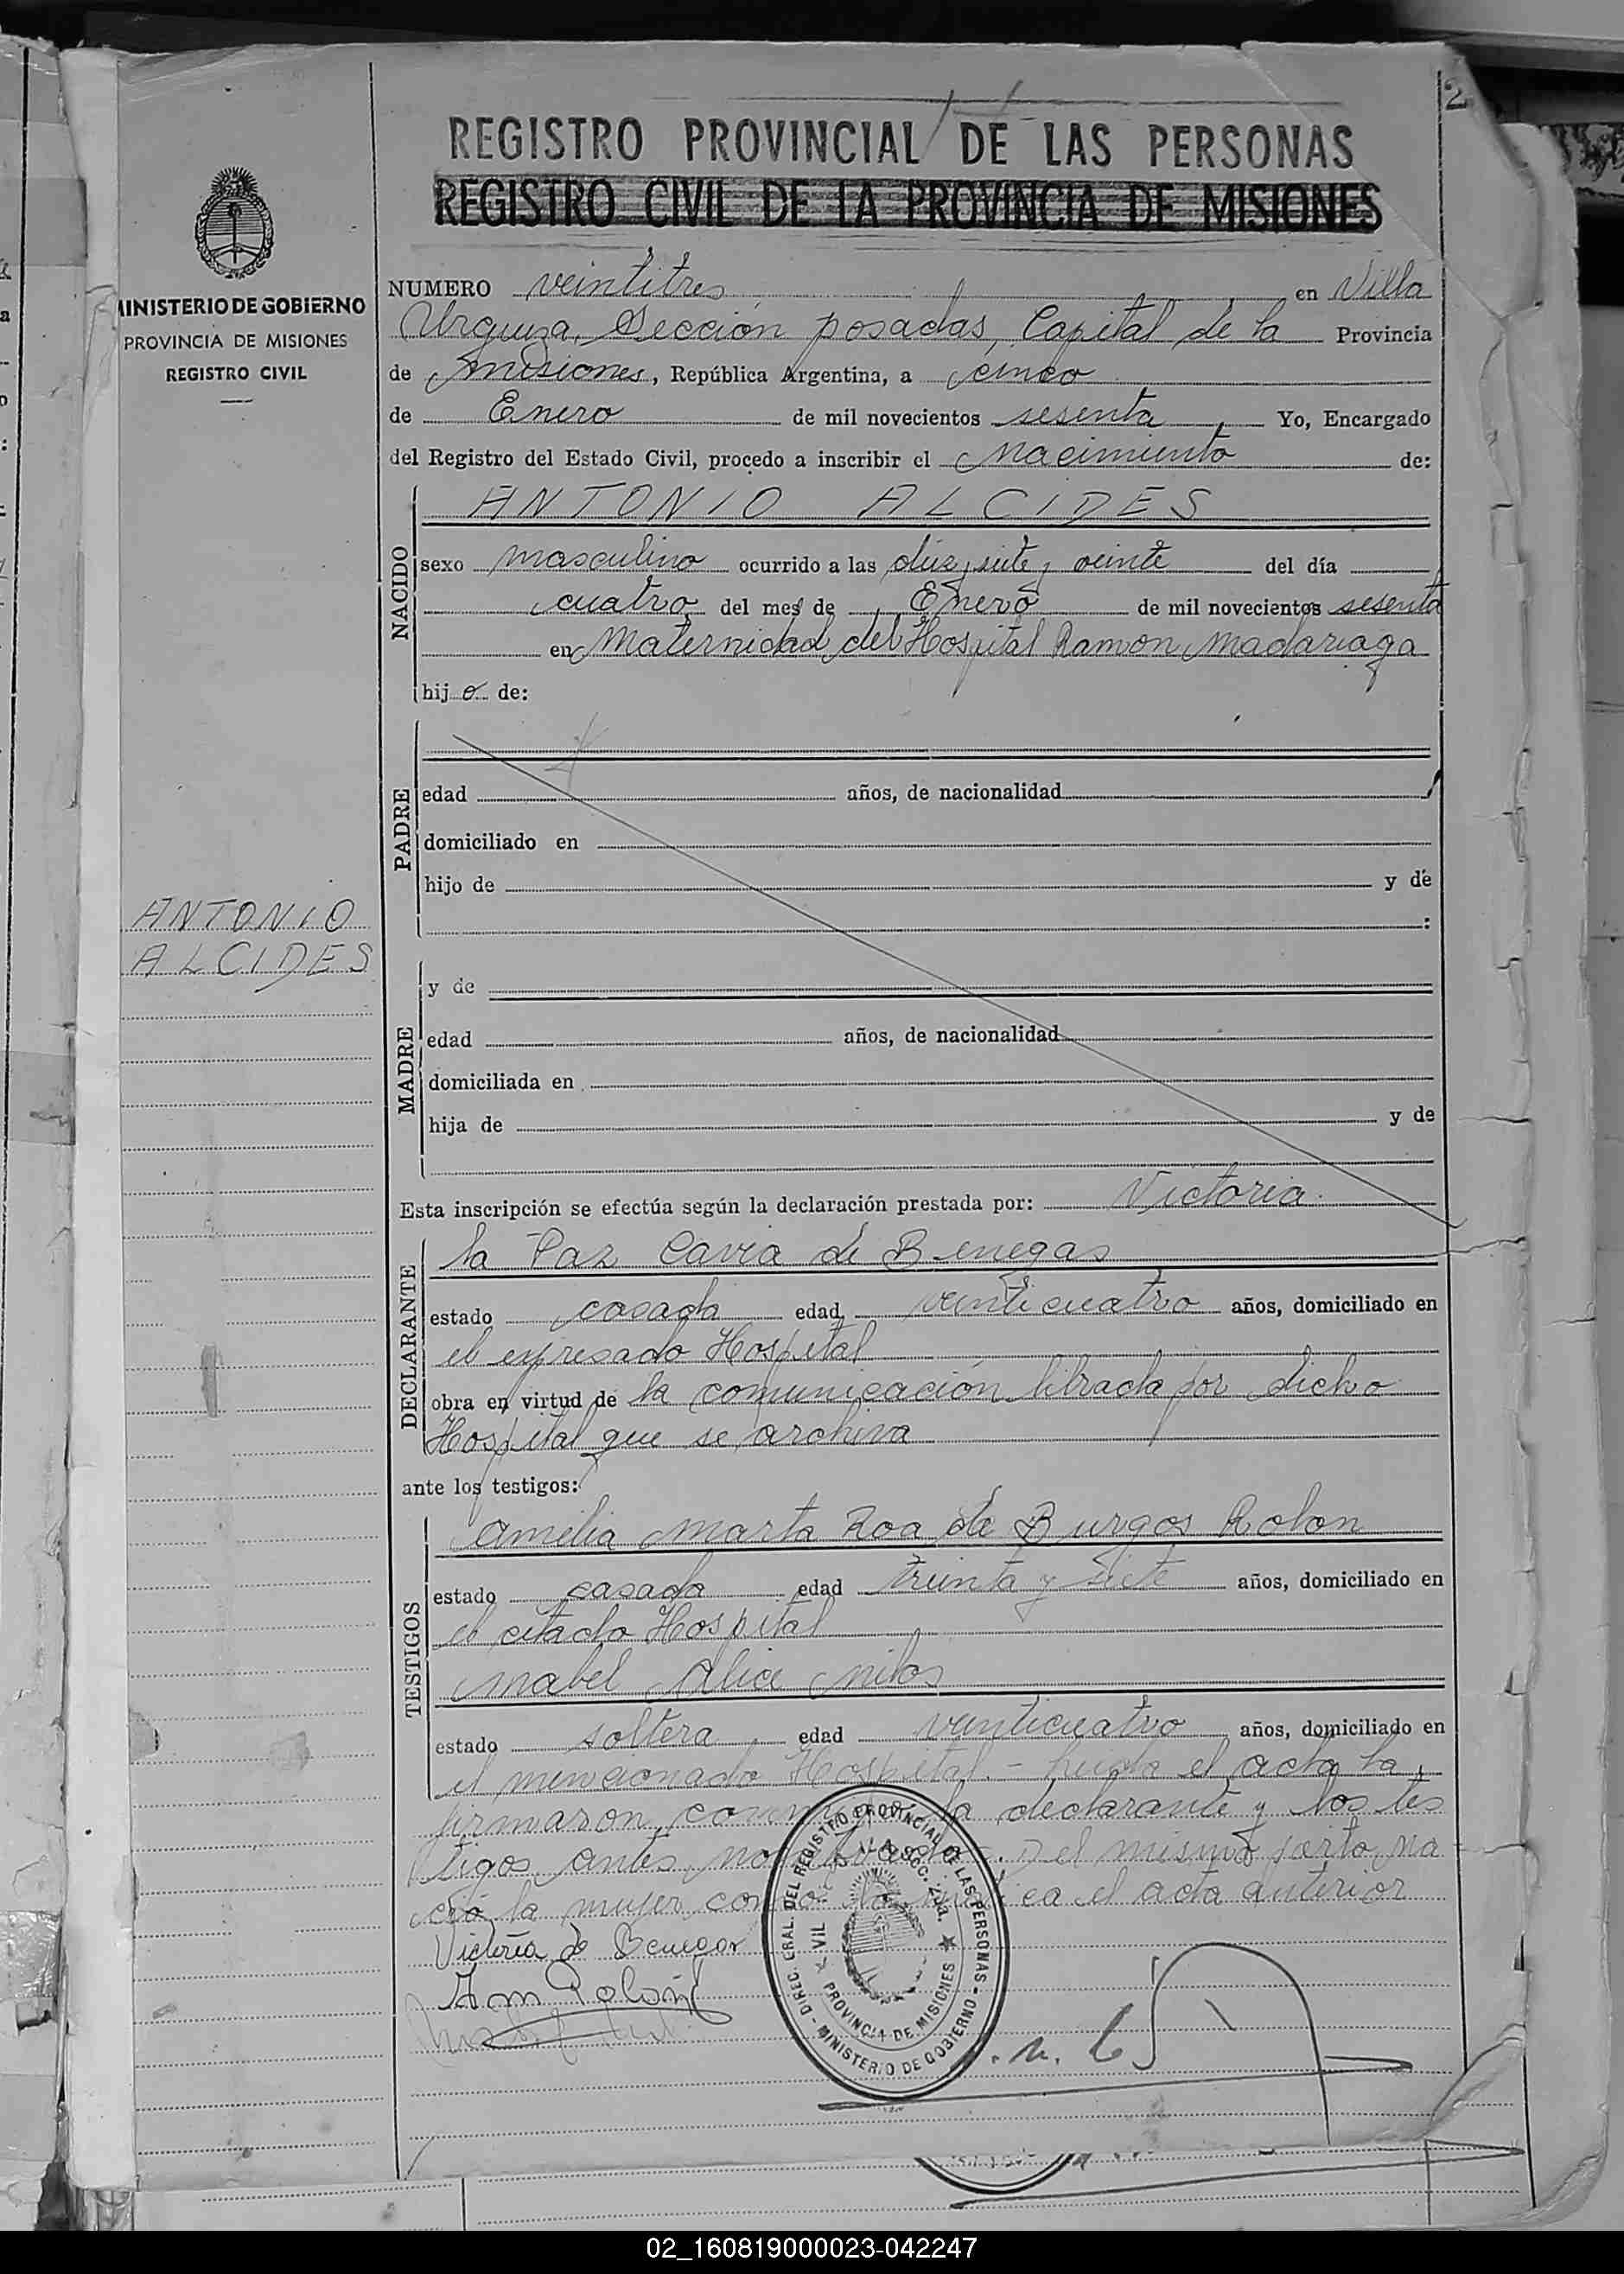 2
REGISTRO PROVINCIAL DE LAS PERSONAS
REGISTRO CIVIL DE LA PROVINCIA DE MISIONES
MINISTERIO DE GOBIERNO
PROVINCIA DE MISIONES
REGISTRO CIVIL
ANTONIO
ALCIDES
NUMERO veintitres en Villa
Urquiza, Sección posadas, Capital de la Provincia
de Misiones, República Argentina, a cinco
de Enero de mil novecientos sesenta, Yo, Encargado
del Registro del Estado Civil, procedo a inscribir el Nacimiento de:
NACIDO
ANTONIO ALCIDES
sexo masculino ocurrido a las diez y siete y veinte del día
cuatro del mes de Enero de mil novecientos sesenta
en Maternidad del Hospital Ramon Madariaga
hijo de:
PADRE
edad años, de nacionalidad
domiciliado en
hijo de y de
:
MADRE
y de
edad años, de nacionalidad
domiciliada en
hija de y de
Esta inscripción se efectúa según la declaración prestada por: Victoria
DECLARANTE
la Paz Cavia de Benegas
estado casada edad veinticuatro años, domiciliado en
el expresado Hospital
obra en virtud de la comunicación librada por dicho
Hospital que se archiva
ante los testigos:
TESTIGOS
Amelia Marta Roa de Burgos Rolon
estado casada edad treinta y siete años, domiciliado en
el citado Hospital
Mabel Alice
estado soltera edad veinticuatro años, domiciliado en
el mencionado Hospital.- Leida el acta la
firmaron conmigo la declarante y los tes
tigos antes nombrados. Del mismo parto na
ció la mujer como el acta anterior
Victoria de Benegas
A m Rolón
DIREC. GRAL. DEL REGISTRO PROVINCIAL DE LAS PERSONAS - MINISTERIO DE GOBIERNO -
PROVINCIA DE MISIONES
02_160819000023-042247